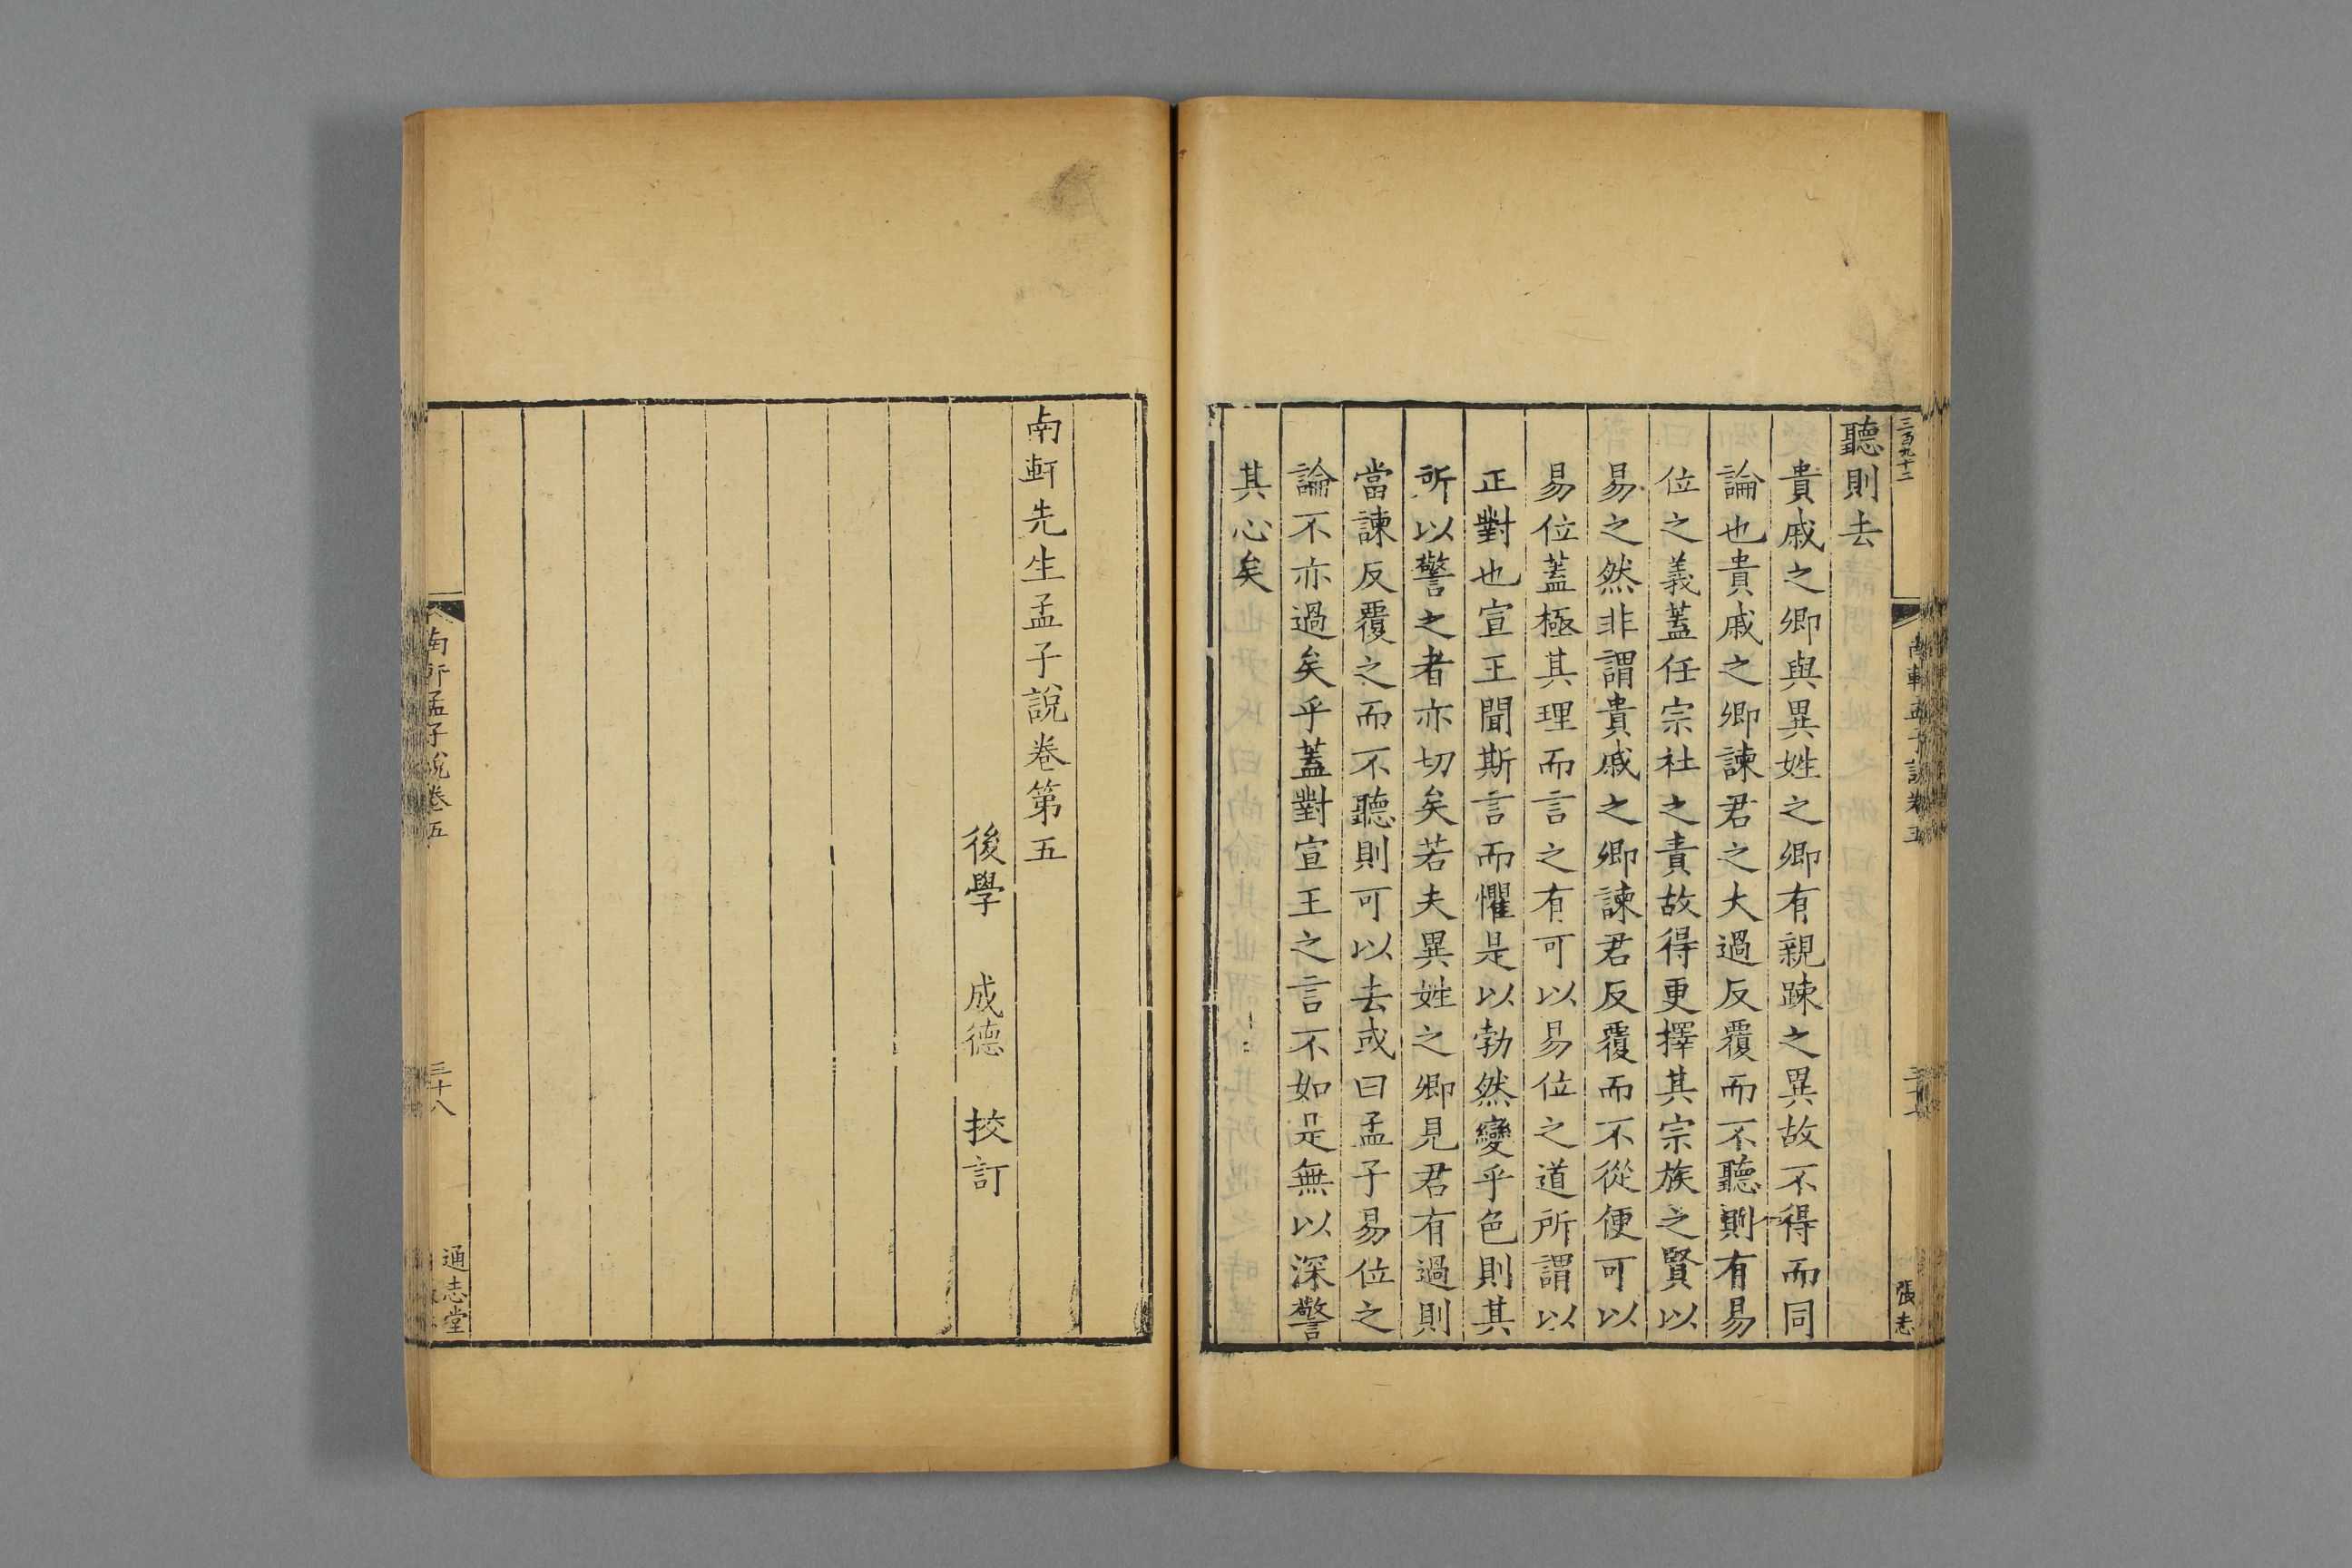 三百九十二
南軒孟子說卷五
張志
聽則去
貴戚之卿與異姓之卿有親踈之異故不得而同
論也貴戚之卿諫君之大過反覆而不聽則有易
位之義蓋任宗社之責故得更擇其宗族之賢以
易之然非謂貴戚之卿諫君反覆而不從便可以
易位蓋極其理而言之有可以易位之道所謂以
正對也宣王聞斯言而懼是以勃然變乎色則其
所以警之者亦切矣若夫異姓之卿見君有過則
當諫反覆之而不聽則可以去或曰孟子易位之
論不亦過矣乎蓋對宣王之言不如是無以深警
其心矣
南軒先生孟子說卷第五
後學 成德 挍訂
南軒孟子說卷五
三十八
通志堂